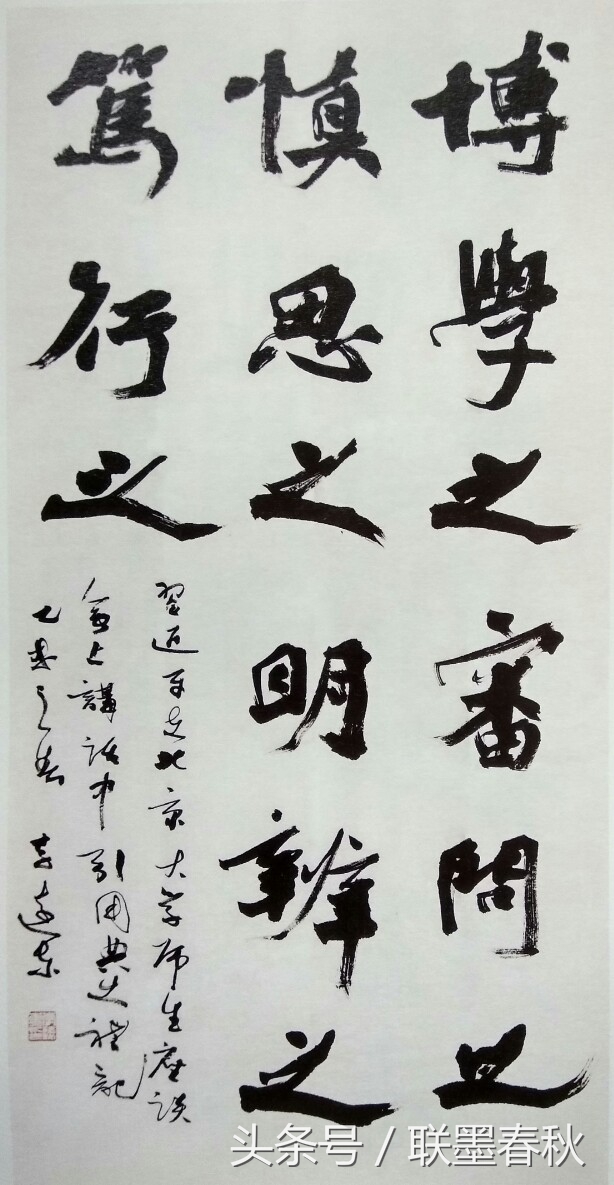 博學之審問之
慎思之明辨之
篤行之
習近平在北京大学师生座談
會上講話中引用典史禮記
乙未之春
头条号 / 联墨春秋